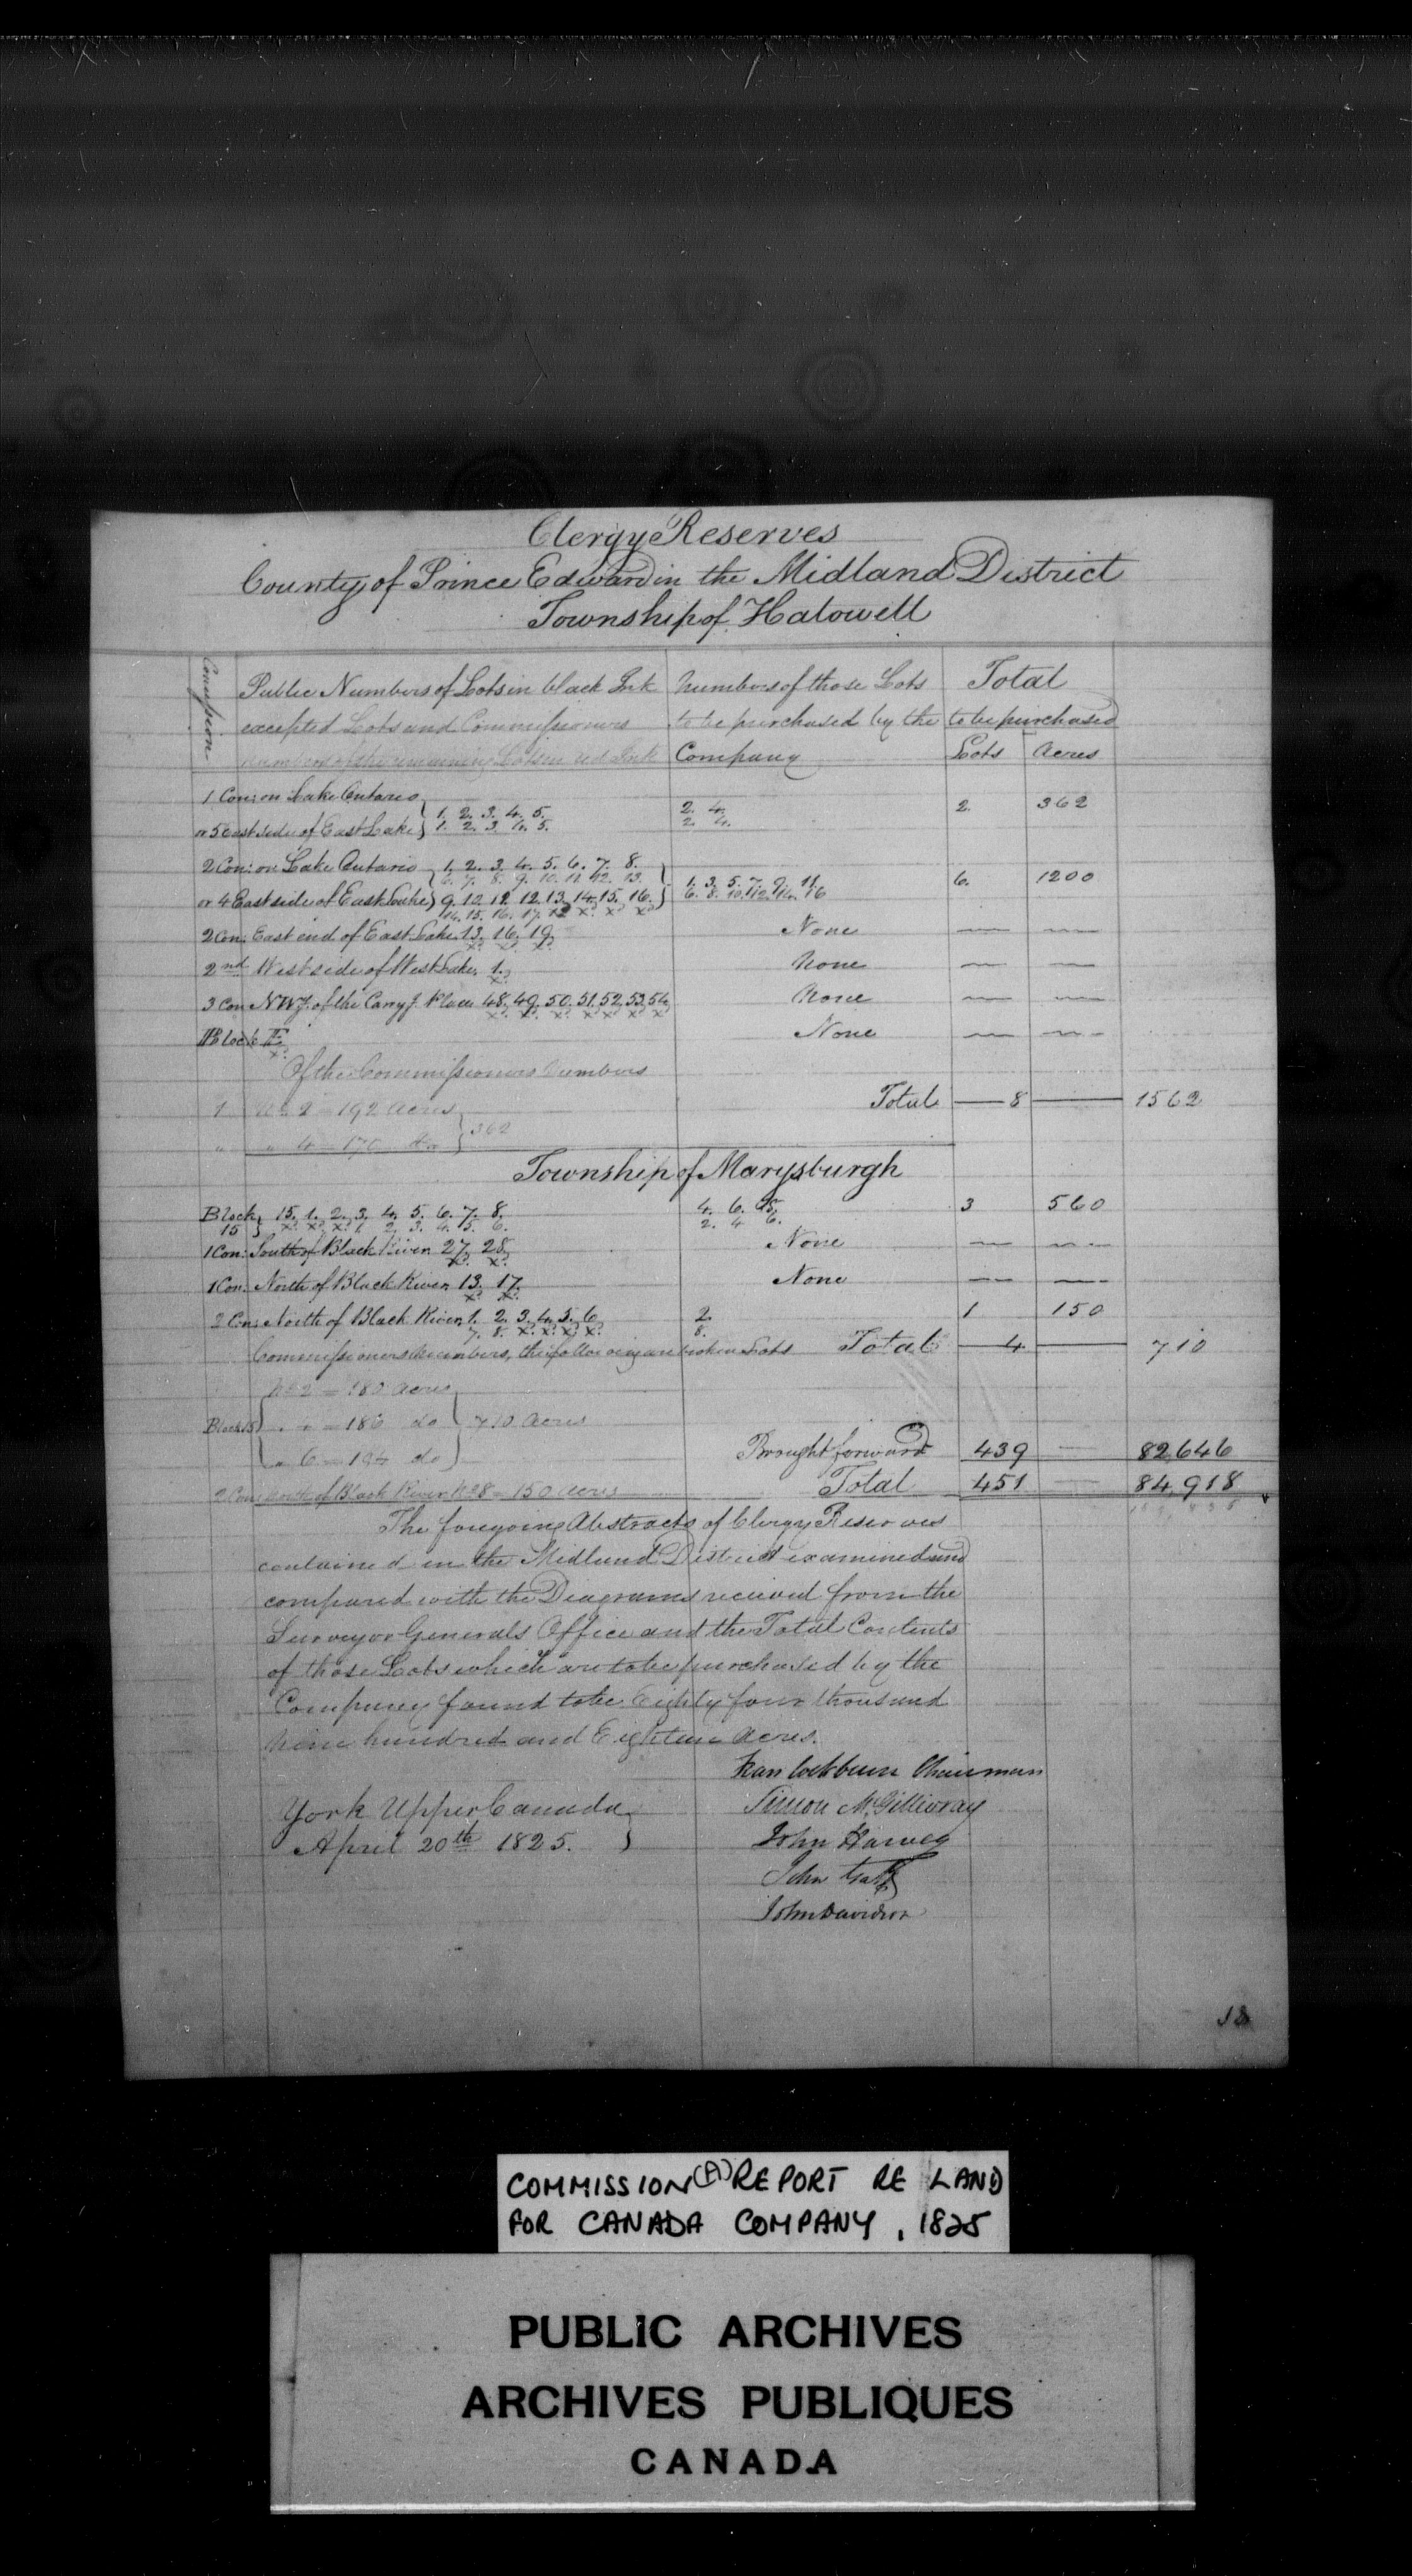 Clergy Reserves
County of Prince Edward in the Midland District
Township of Halowell
Concession
Public Numbers of Lots in black Ink
excepted Lots and Commissioners
numbers of the remaining Lots in red Ink
Numbers of those Lots
to be purchased by the
Company
Total
to be purchased
Lots Acres
1 Con: on Lake Ontario
or 5 East side of East Lake } 1. 2. 3. 4. 5.
1. 2. 3. 4. 5.
2. 4.
2. 4.
2. 362
2 Con: on Lake Ontario 1. 2. 3. 4. 5. 6. 7. 8.
6. 7. 8. 9. 10. 11. 12. 13.
or 4 East side of East Lake 9. 10. 11. 12. 13. 14. 15. 16.
14. 15. 16. 17. 18 x. x. x.
1. 3. 5. 7. 9. 11.
6. 8. 10. 12. 14. 16
6. 1200
2 Con: East end of East Lake 13. 16. 19. None
x. x. x.
2nd West side of West Lake 1. None
x.
3 Con NW of the Carry g. Place 48. 49. 50. 51. 52. 53. 54 None
x. x. x. x. x. x. x.
Block E None
x.
Of the Commissioners Numbers
1 No 2 = 192 Acres
" " 4 = 170 do } 362
Total 8 1562
Township of Marysburgh
Block 15 } 15. 1. 2. 3. 4. 5. 6. 7. 8.
x. x. x. 1. 2. 3. 4. 5. 6.
4. 6. 8.
2. 4. 6.
3 560
1 Con: South of Black River 27. 28. None
x. x.
1 Con: North of Black River 13. 17. None
x. x.
2 Con: North of Black River 1. 2. 3. 4. 5. 6. 2. 1 150
7. 8. x. x. x. x. 8.
Commissioners numbers, the following are broken Lots Total 4 710
No 2 = 180 Acres
Block 15 " " = 186 do } 710 Acres
" 6 = 194 do
Brought forward 439 82,646
2 Con: North of Black River No 8 = 150 Acres
Total 451 84,918
The foregoing Abstracts of Clergy Reserves
contained in the Midland District examined and
compared with the Diagrams received from the
Surveyor Generals Office and the Total Contents
of those Lots which are to be purchased by the
Company found to be Eighty four thousand
nine hundred and Eighteen Acres.
York Upper Canada
April 20th 1825.
Fran Cockburn Chairman
Simon McGillivray
John Harvey
John Galt
John Davidson
18
COMMISSION (A) REPORT RE LAND
FOR CANADA COMPANY, 1825
PUBLIC ARCHIVES
ARCHIVES PUBLIQUES
CANADA